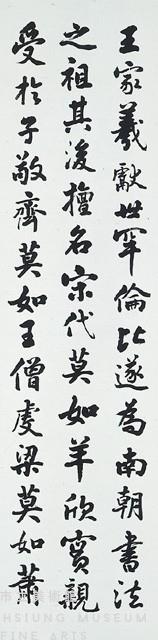 王家羲獻世罕倫比遂為南朝書法
之祖其後擅名宋代莫如羊欣實親
受於子敬齊莫如王僧虔梁莫如蕭
HSIUNG MUSEUM
FINE ARTS